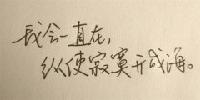 我会一直在，
纵使寂寞开成海。